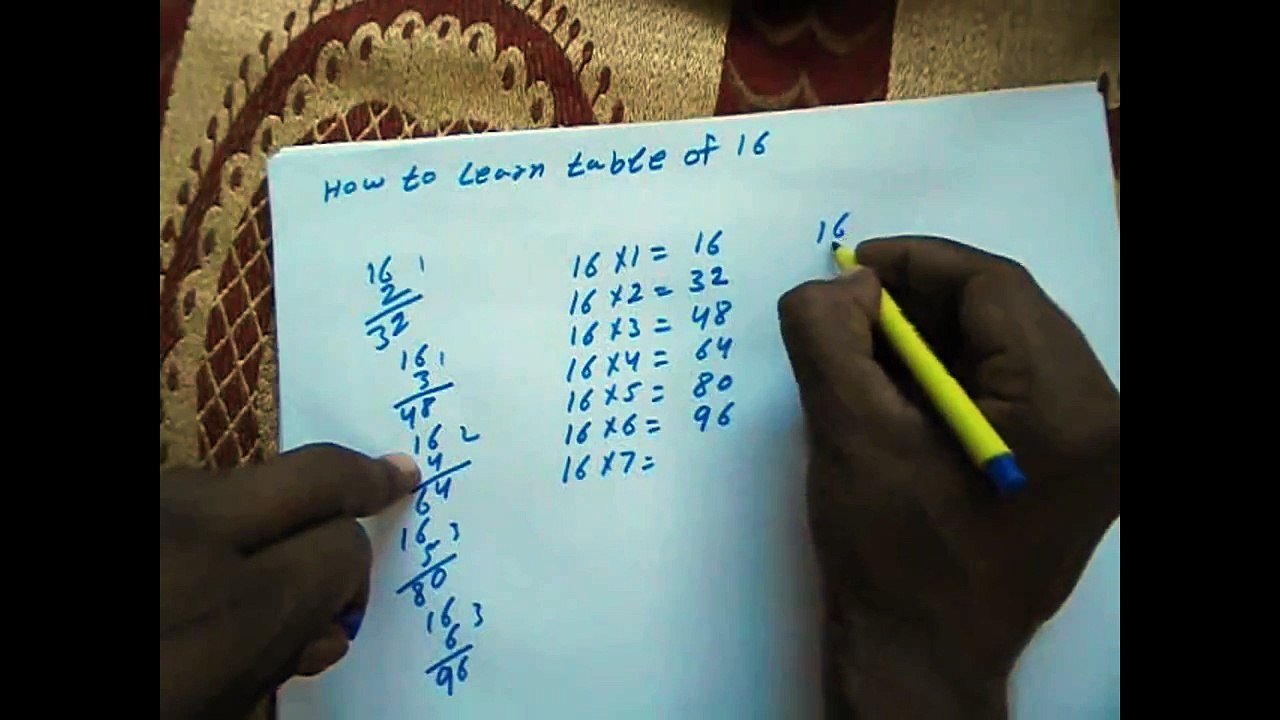 How to Learn table of 16
16 1
2
32
16 1
3
48
16 2
4
64
16 3
5
80
16 3
6
96
16 x 1 = 16
16 x 2 = 32
16 x 3 = 48
16 x 4 = 64
16 x 5 = 80
16 x 6 = 96
16 x 7 =
16